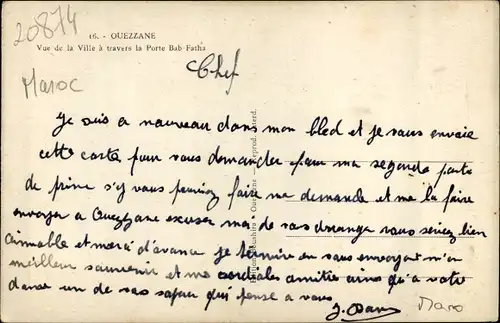 20874
16. - OUEZZANE
Vue de la Ville à travers la Porte Bab Fatha
Maroc
Chef
Je suis a nouveau dans mon bled et je vous envoie
cette carte pour vous demander pour ma segonde parte
de prime s'y vous pouriez faire ma demande et me la faire
envoyer a Ouezzane excuser moi de vous derange vous seriez bien
aimable et merci d'avance je termine en vous envoyant m'n
meilleur souvenir et me cordiales amities ainsi qu'a votre
dame un de vos sapeur qui pense a vous
Maro